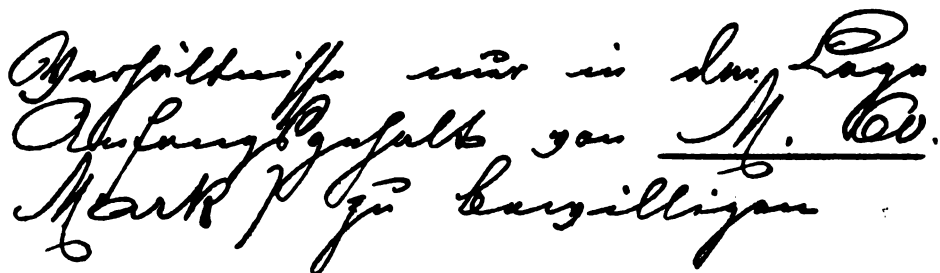 Verhältnisse nur in der Lage
Anfangsgehalt von M. 60.
Mark / zu bewilligen